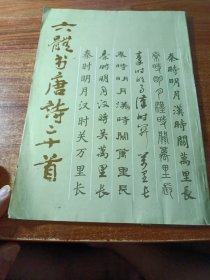 秦時明月漢時關萬里長
秦時明月漢時關萬里長
秦时明月漢時關萬里长
秦時明月漢時關萬里長
秦時明月汉時关萬里長
秦时明月汉时关万里长
六體书唐詩二十首